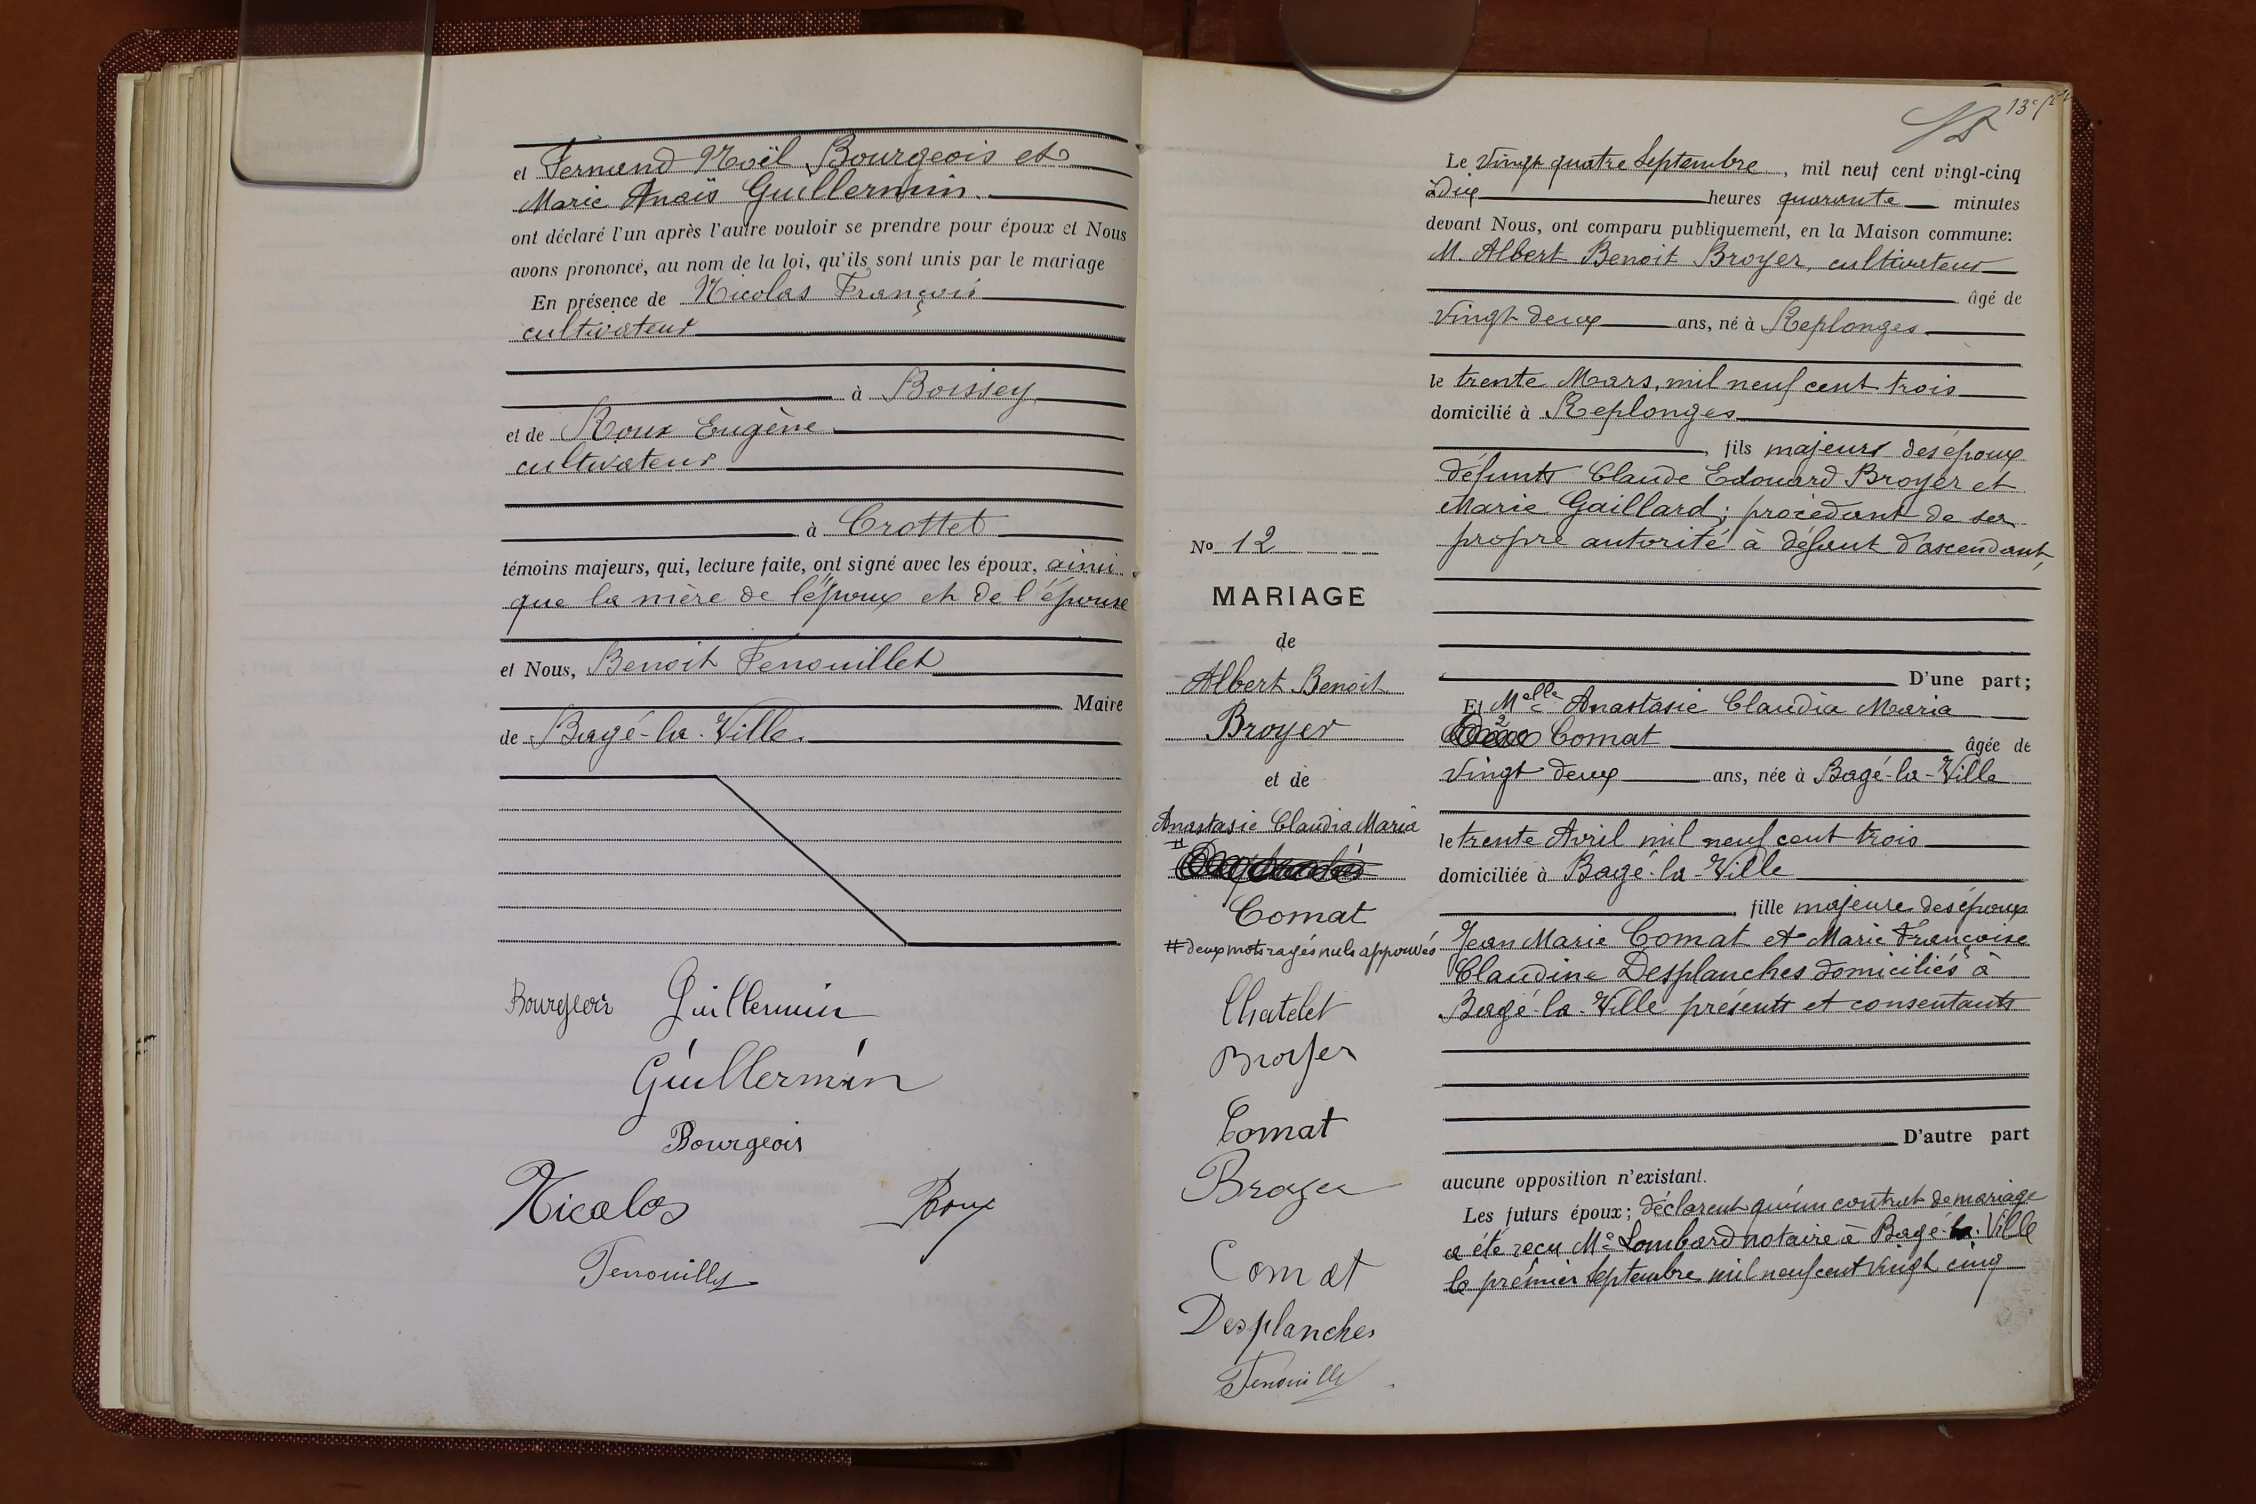 et Fernand Noël Bourgeois et
Marie Anaïs Guillermin.
ont déclaré l'un après l'autre vouloir se prendre pour époux et Nous
avons prononcé, au nom de la loi, qu'ils sont unis par le mariage
En présence de Nicolas François
cultivateur
à Boissey
et de Roux Eugène
cultivateur
à Crottet
témoins majeurs, qui, lecture faite, ont signé avec les époux, ainsi
que la mère de l'époux et de l'épouse
et Nous, Benoit Fenouillet
Maire
de Bagé-la-Ville.
Bourgeois Guillermin
Guillermin
Bourgeois
Nicolas Roux
Fenouillet
13e
Le vingt quatre Septembre, mil neuf cent vingt-cinq
à Dix heures quarante minutes
devant Nous, ont comparu publiquement, en la Maison commune:
M. Albert Benoit Broyer, cultivateur
âgé de
vingt deux ans, né à Replonges
le trente Mars, mil neuf cent trois
domicilié à Replonges
, fils majeur des époux
défunts Claude Edouard Broyer et
Marie Gaillard; procédant de sa
propre autorité à défaut d'ascendant,
D'une part;
Et Melle Anastasie Claudia Maria
Comat âgée de
vingt deux ans, née à Bagé-la-Ville
le trente Avril mil neuf cent trois
domiciliée à Bagé-la-Ville
fille majeure des époux
Jean Marie Comat et Marie Françoise
Claudine Desplanches domiciliés à
Bagé-la-Ville présents et consentants
D'autre part
aucune opposition n'existant.
Les futurs époux; déclarent qu'un contrat de mariage
a été reçu Me Lombard notaire à Bagé-la-Ville
le premier Septembre mil neuf cent vingt cinq
No 12
MARIAGE
de
Albert Benoit
Broyer
et de
Anastasie Claudia Maria
Comat
# deux mots rayés nuls approuvés
Chatelet
Broyer
Comat
Broyer
Comat
Desplanches
Fenouillet